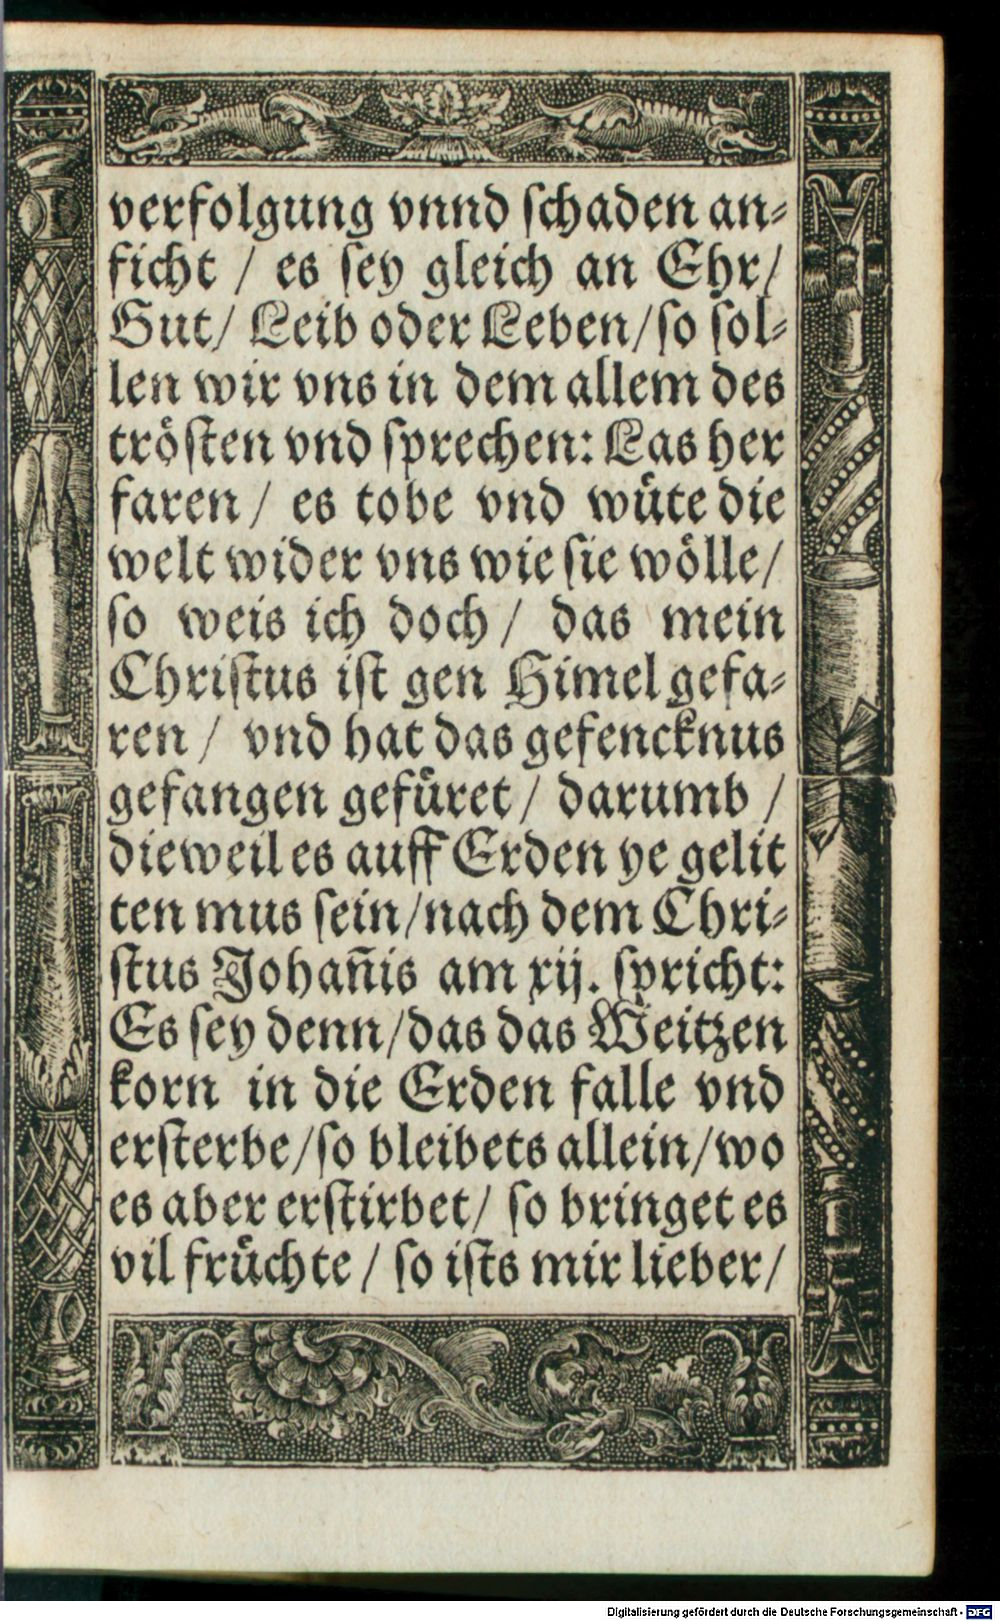 verfolgung vnnd ſchaden an⸗
ficht / es ſey gleich an Ehr/
Gut/ Leib oder Leben/ſo ſol⸗
len wir vns in dem allem des
tröſten vnd ſprechen: Las her
faren/ es tobe vnd wüte die
welt wider vns wie ſie wölle/
ſo weis ich doch/ das mein
Chriſtus iſt gen Himel gefa⸗
ren/ vnd hat das gefencknus
gefangen gefüret/ darumb /
dieweil es auff Erden ye gelit
ten mus ſein/nach dem Chri⸗
ſtus Johan̄is am xij. ſpricht:
Es ſey denn/das das Weitzen
korn in die Erden falle vnd
erſterbe/ſo bleibets allein/wo
es aber erſtirbet/ ſo bringet es
vil früchte/ ſo iſts mir lieber/
Digitalisierung gefördert durch die Deutsche Forschungsgemeinschaft - DFG